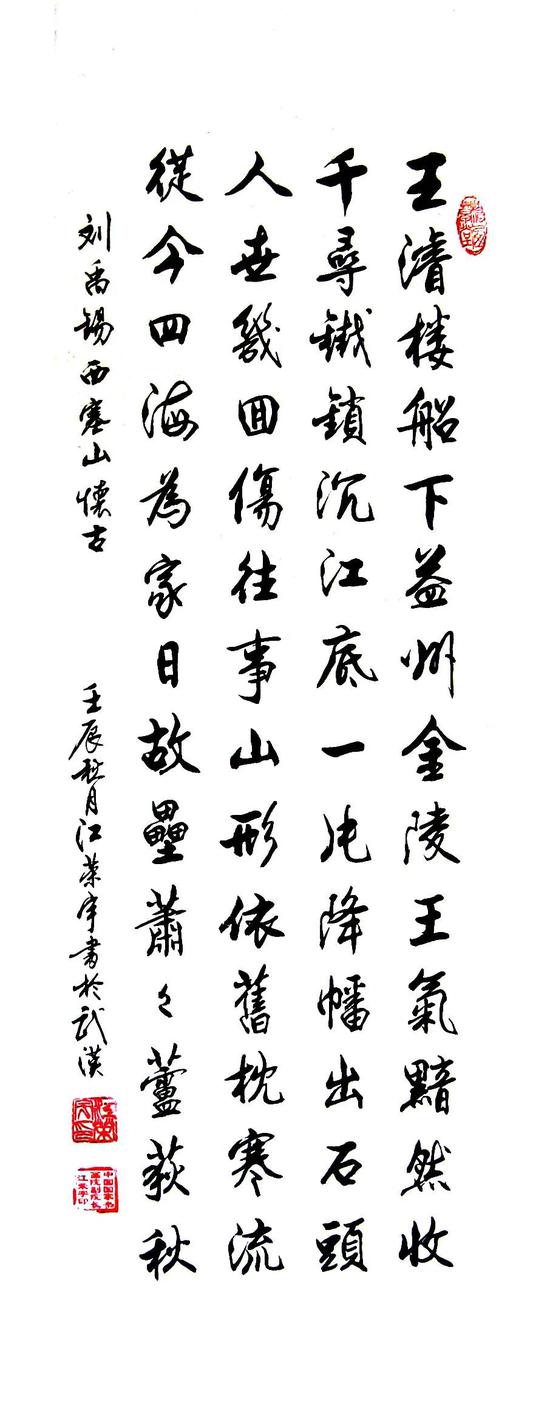 王濬楼船下益州金陵王氣黯然收
千尋鐵鎖沉江底一片降幡出石頭
人世幾囬傷往事山形依舊枕寒流
從今四海為家日故壘蕭々蘆荻秋
刘禹锡西塞山懷古
壬辰秋月江荣宇書於武漢